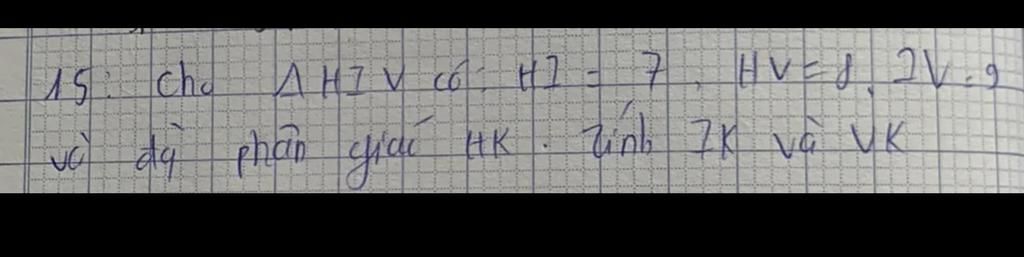 15: Cho Δ HIV có: HI = 7, HV = 8, IV = 9
và đg phân giác HK. Tính IK và VK